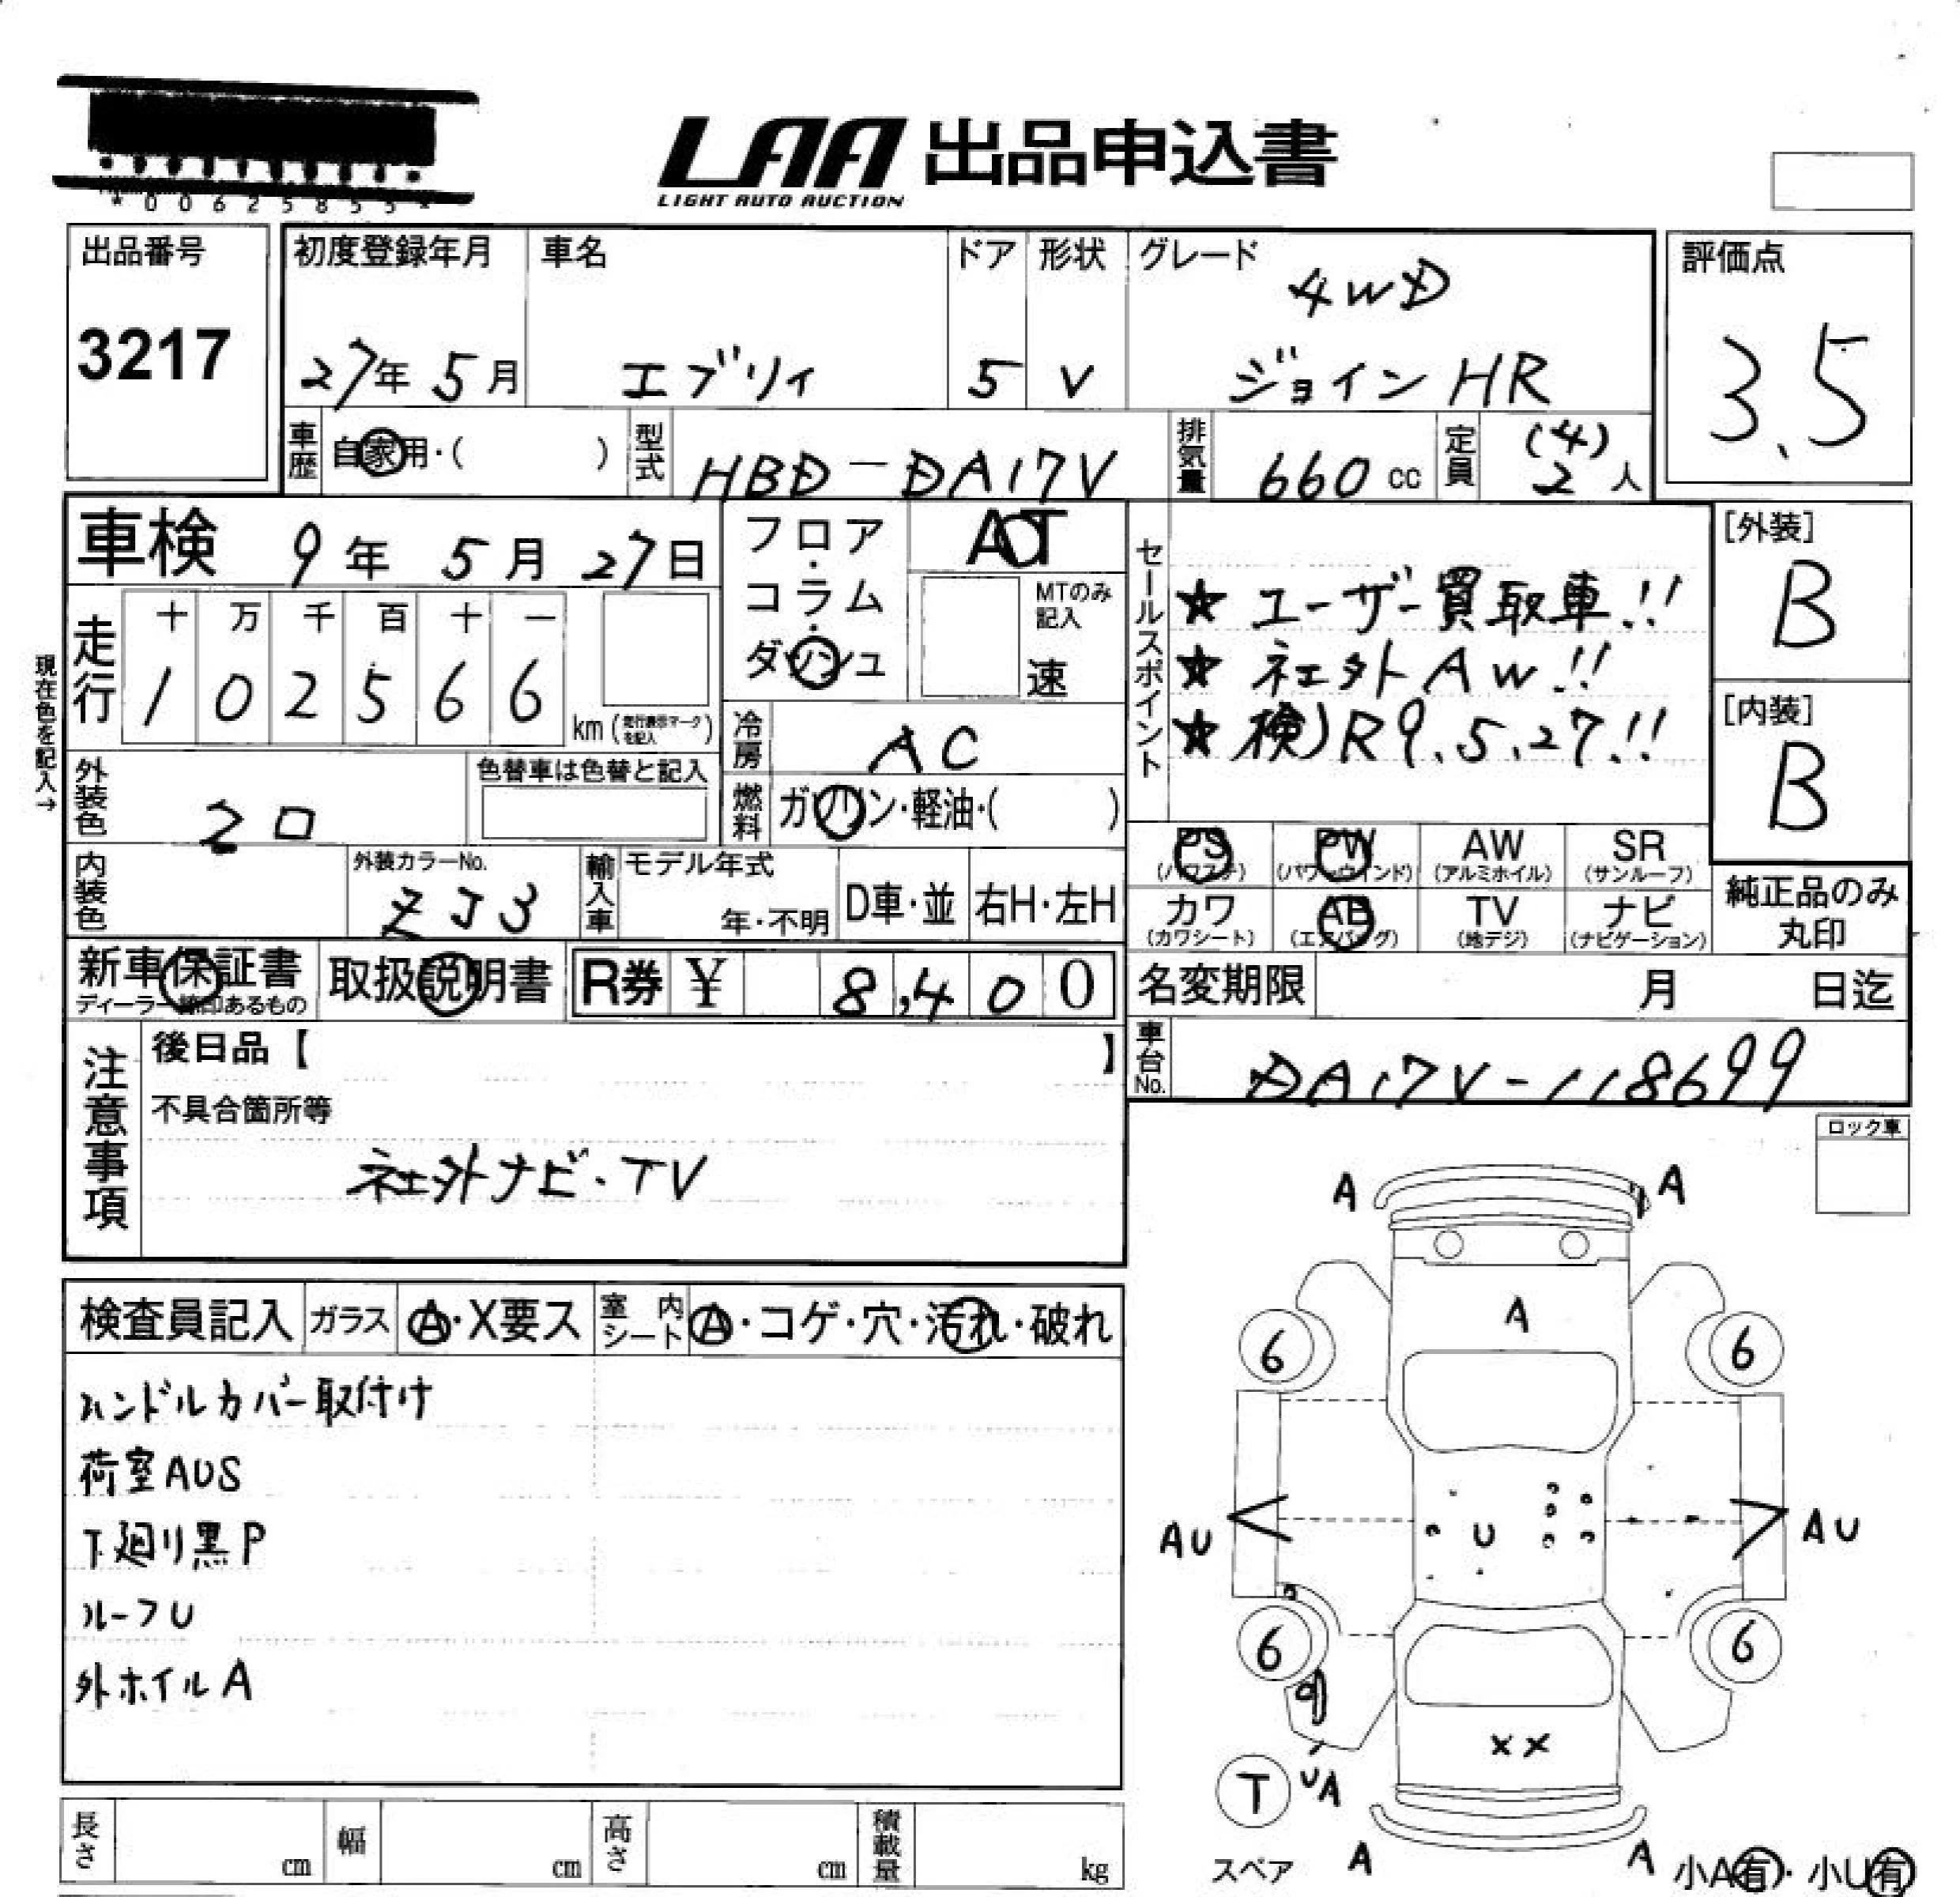 *00625855*
LAA 出品申込書
LIGHT AUTO AUCTION
出品番号 3217
初度登録年月 27年 5月
車名 エブリィ
ドア 5
形状 V
グレード 4WD
ジョイン HR
評価点 3.5
車歴 自家用・( )
型式 HBD-DA17V
排気量 660 cc
定員 (4)
2 人
車検 9年 5月 27日
フロア・コラム・ダッシュ
AT
MTのみ記入
速
走行 十 万 千 百 十 一
1 0 2 5 6 6
km (走行表示マークを記入)
現在色を記入→
冷房 AC
外装色 シロ
色替車は色替と記入
燃料 ガソリン・軽油・( )
セールスポイント
★ ユーザー買取車!!
★ 社外AW!!
★ 検)R9.5.27!!
[外装] B
[内装] B
内装色
外装カラーNo. ZJ3
輸入車 モデル年式
年・不明
D車・並
右H・左H
PS (パワステ)
PW (パワーウインド)
AW (アルミホイル)
SR (サンルーフ)
カワ (カワシート)
AB (エアバッグ)
TV (地デジ)
ナビ (ナビゲーション)
純正品のみ
丸印
新車保証書
ディーラー捺印あるもの
取扱説明書
R券 ¥ 8,400
名変期限 月 日迄
車台No. DA17V-118699
注意事項
後日品【 】
不具合箇所等
社外ナビ・TV
ロック車
検査員記入
ガラス A・X要ス
室内シート A・コゲ・穴・汚れ・破れ
ハンドルカバー取付け
荷室AUS
下廻り黒P
ルーフU
外ホイルA
A A
A
6 6
AU U AU
6 6
XX
T UA
スペア A A
小A有・小U有
長さ cm
幅 cm
高さ cm
積載量 kg